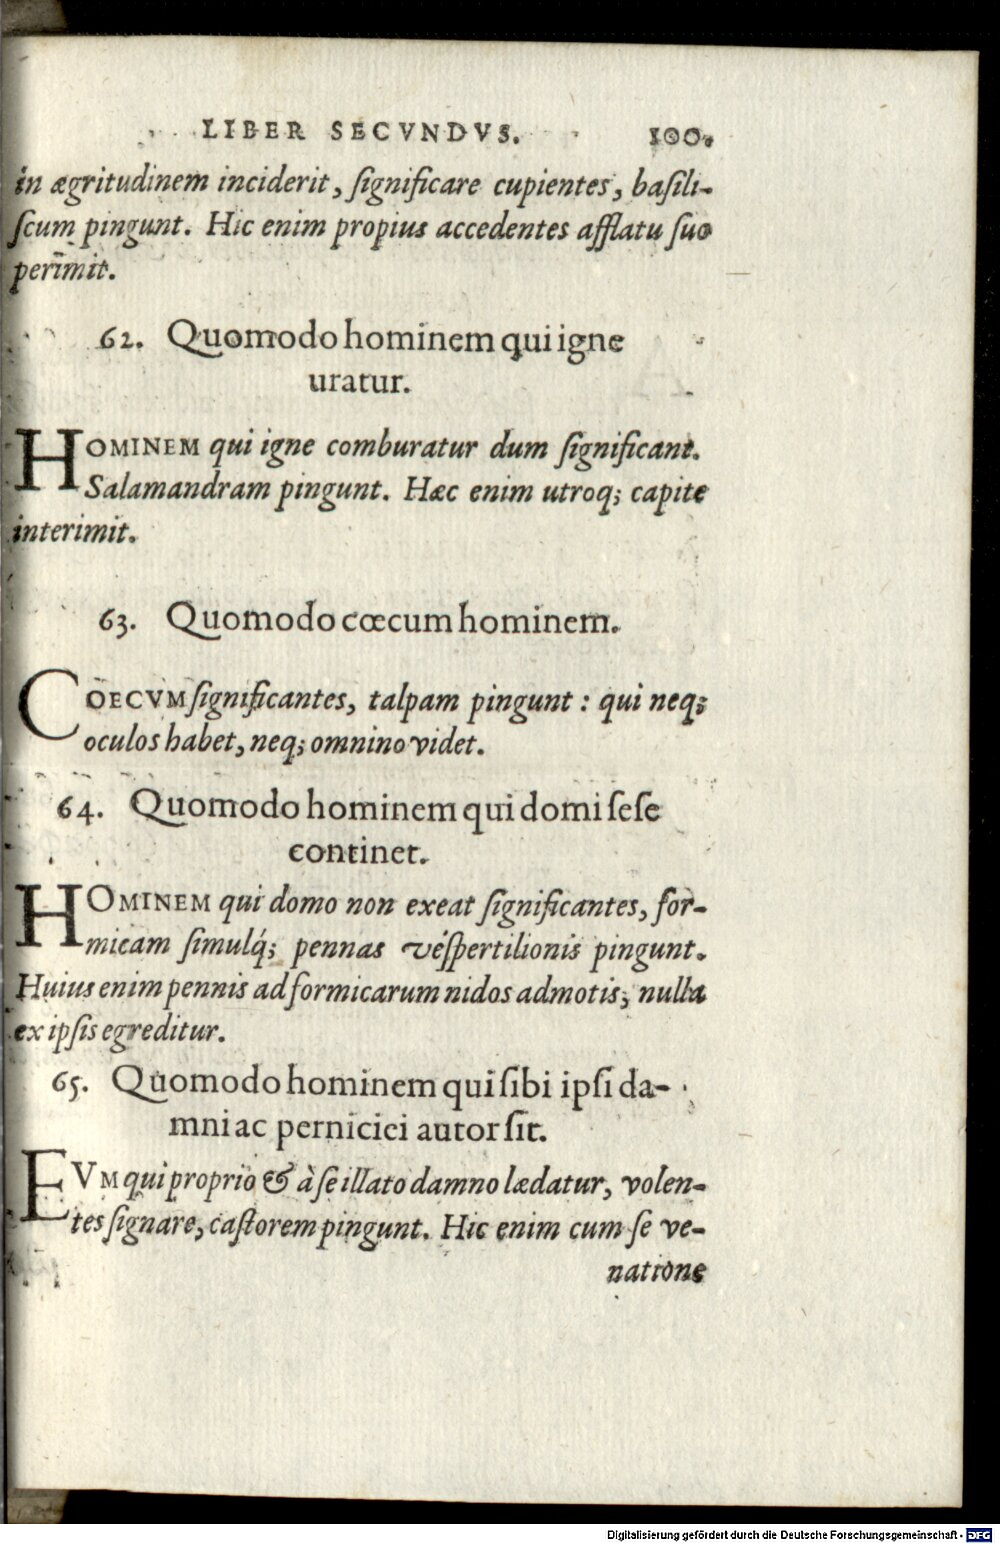 LIBER SECVNDVS. 100.
in ægritudinem inciderit, ſignificare cupientes, baſili-
ſcum pingunt. Hic enim propius accedentes afflatu ſuo
perimit.
62. Quomodo hominem qui igne
uratur.
HOMINEM qui igne comburatur dum ſignificant.
Salamandram pingunt. Hæc enim utroq; capite
interimit.
63. Quomodo cœcum hominem.
COECVM ſignificantes, talpam pingunt: qui neq;
oculos habet, neq; omnino videt.
64. Quomodo hominem qui domi ſeſe
continet.
HOMINEM qui domo non exeat ſignificantes, for-
micam ſimulq́; pennas veſpertilionis pingunt.
Huius enim pennis ad formicarum nidos admotis; nulla
ex ipſis egreditur.
65. Quomodo hominem qui ſibi ipſi da-
mni ac perniciei autor ſit.
EVM qui proprio & à ſe illato damno lædatur, volen-
tes ſignare, caſtorem pingunt. Hic enim cum ſe ve-
natione
Digitalisierung gefördert durch die Deutsche Forschungsgemeinschaft - DFG